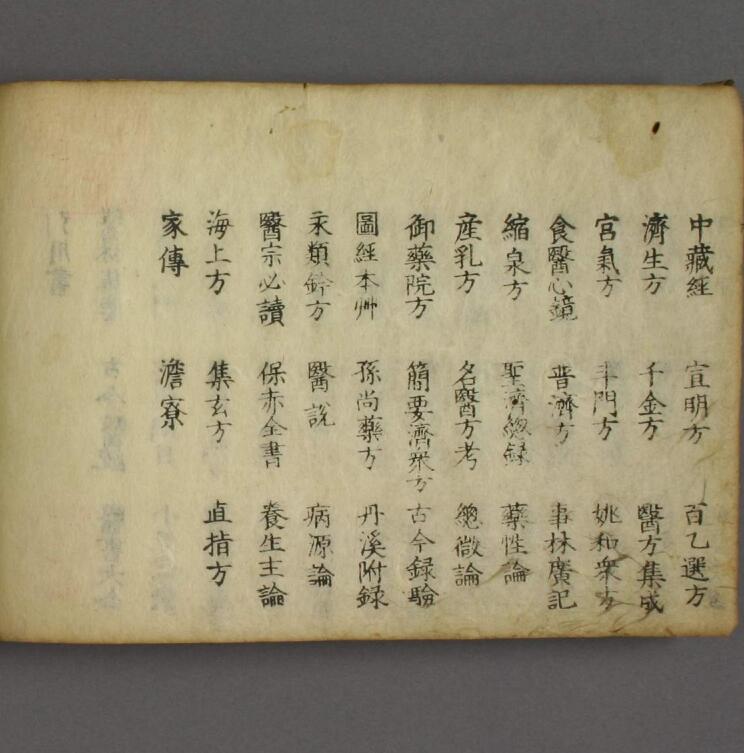 中藏經 宣明方 百乙選方
濟生方 千金方 醫方集成
宮氣方 斗門方 姚和衆方
食醫心鏡 普濟方 事林廣記
縮泉方 聖濟總録 藥性論
産乳方 名醫方考 總微論
御藥院方 簡要濟衆方 古今録驗
圖經本艸 孫尚藥方 丹溪附録
永類鈐方 醫說 病源論
醫宗必讀 保赤全書 養生主論
海上方 集玄方 直指方
家傳 澹寮